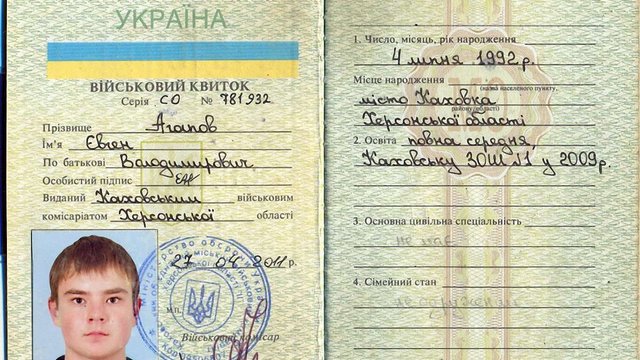 УКРАЇНА
ВІЙСЬКОВИЙ КВИТОК
Серія СО № 781932
Прізвище Агапов
Ім'я Євген
По батькові Володимирович
Особистий підпис
Виданий Каховським військовим
комісаріатом Херсонської області
27 04 2011 р.
М.П.
Військовий комісар
1. Число, місяць, рік народження
4 липня 1992 р.
Місце народження
(назва населеного пункту,
місто Каховка
району, області)
Херсонської області
2. Освіта повна середня,
Каховську ЗОШ 11 у 2009 р.
3. Основна цивільна спеціальність
не має
4. Сімейний стан
не одружений